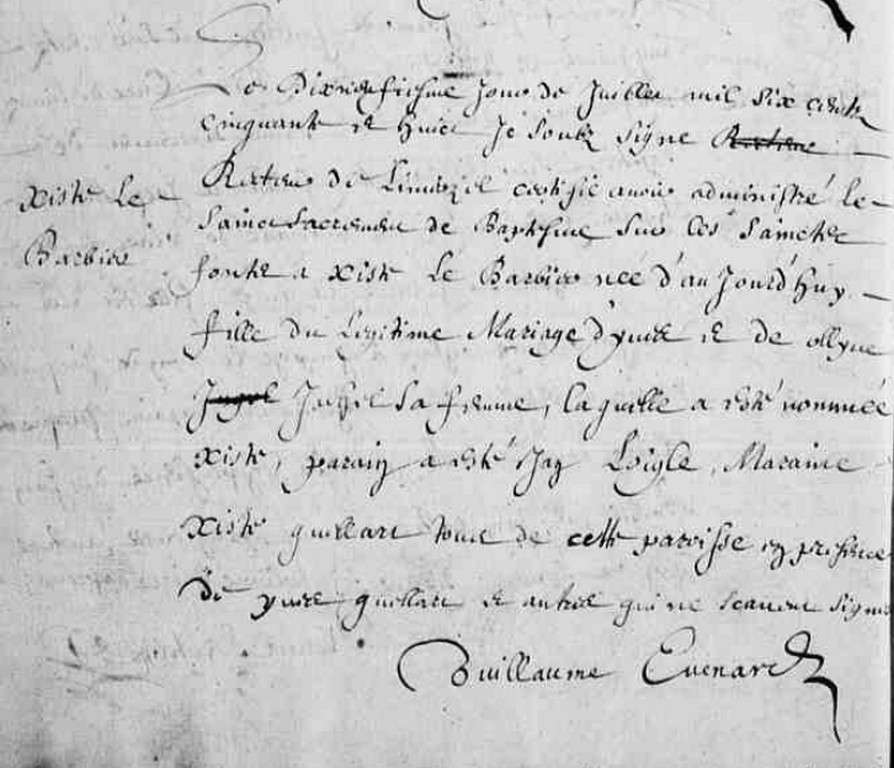 Le Dixneufiesme Jour de Juillet mil six cents
cinquante et huict Je soubz signé Recteur
Xiste Le Recteur de Limerzel certifie avoir administré le
sainct sacrement de Baptesme sur les sainctes
Barbier fonts a Xiste Le Barbier née d'au Jourd'huy
fille du Legitime Mariage d'yves et de ollyve
sa femme, laquelle a esté nommée
Xiste, parain a esté Jan Loigle, Maraine
Xiste guillart tous de cette paroisse en presence
De yves guillart et autres qui ne scavent signer
Guillaume Evenard